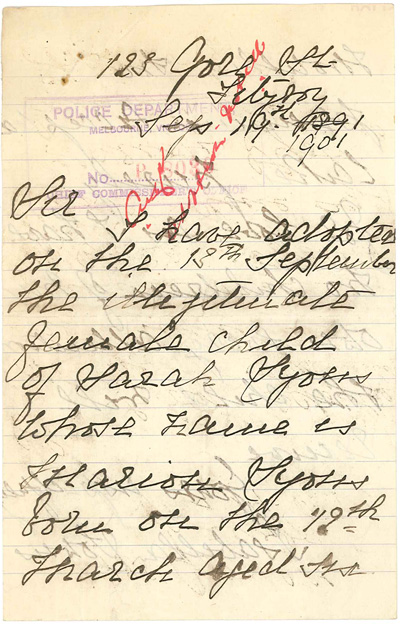 123 Gore St
Fitzroy
POLICE DEPARTMEN
MELBOURNE, VI
Sep 19th 1891
1901
No.
CHIEF COMMISS
Sir
I have adopted
on the 18th September
the illegitimate
female child
of Sarah Lyons
whose name is
Marion Lyons
born on the 19th
March aged six